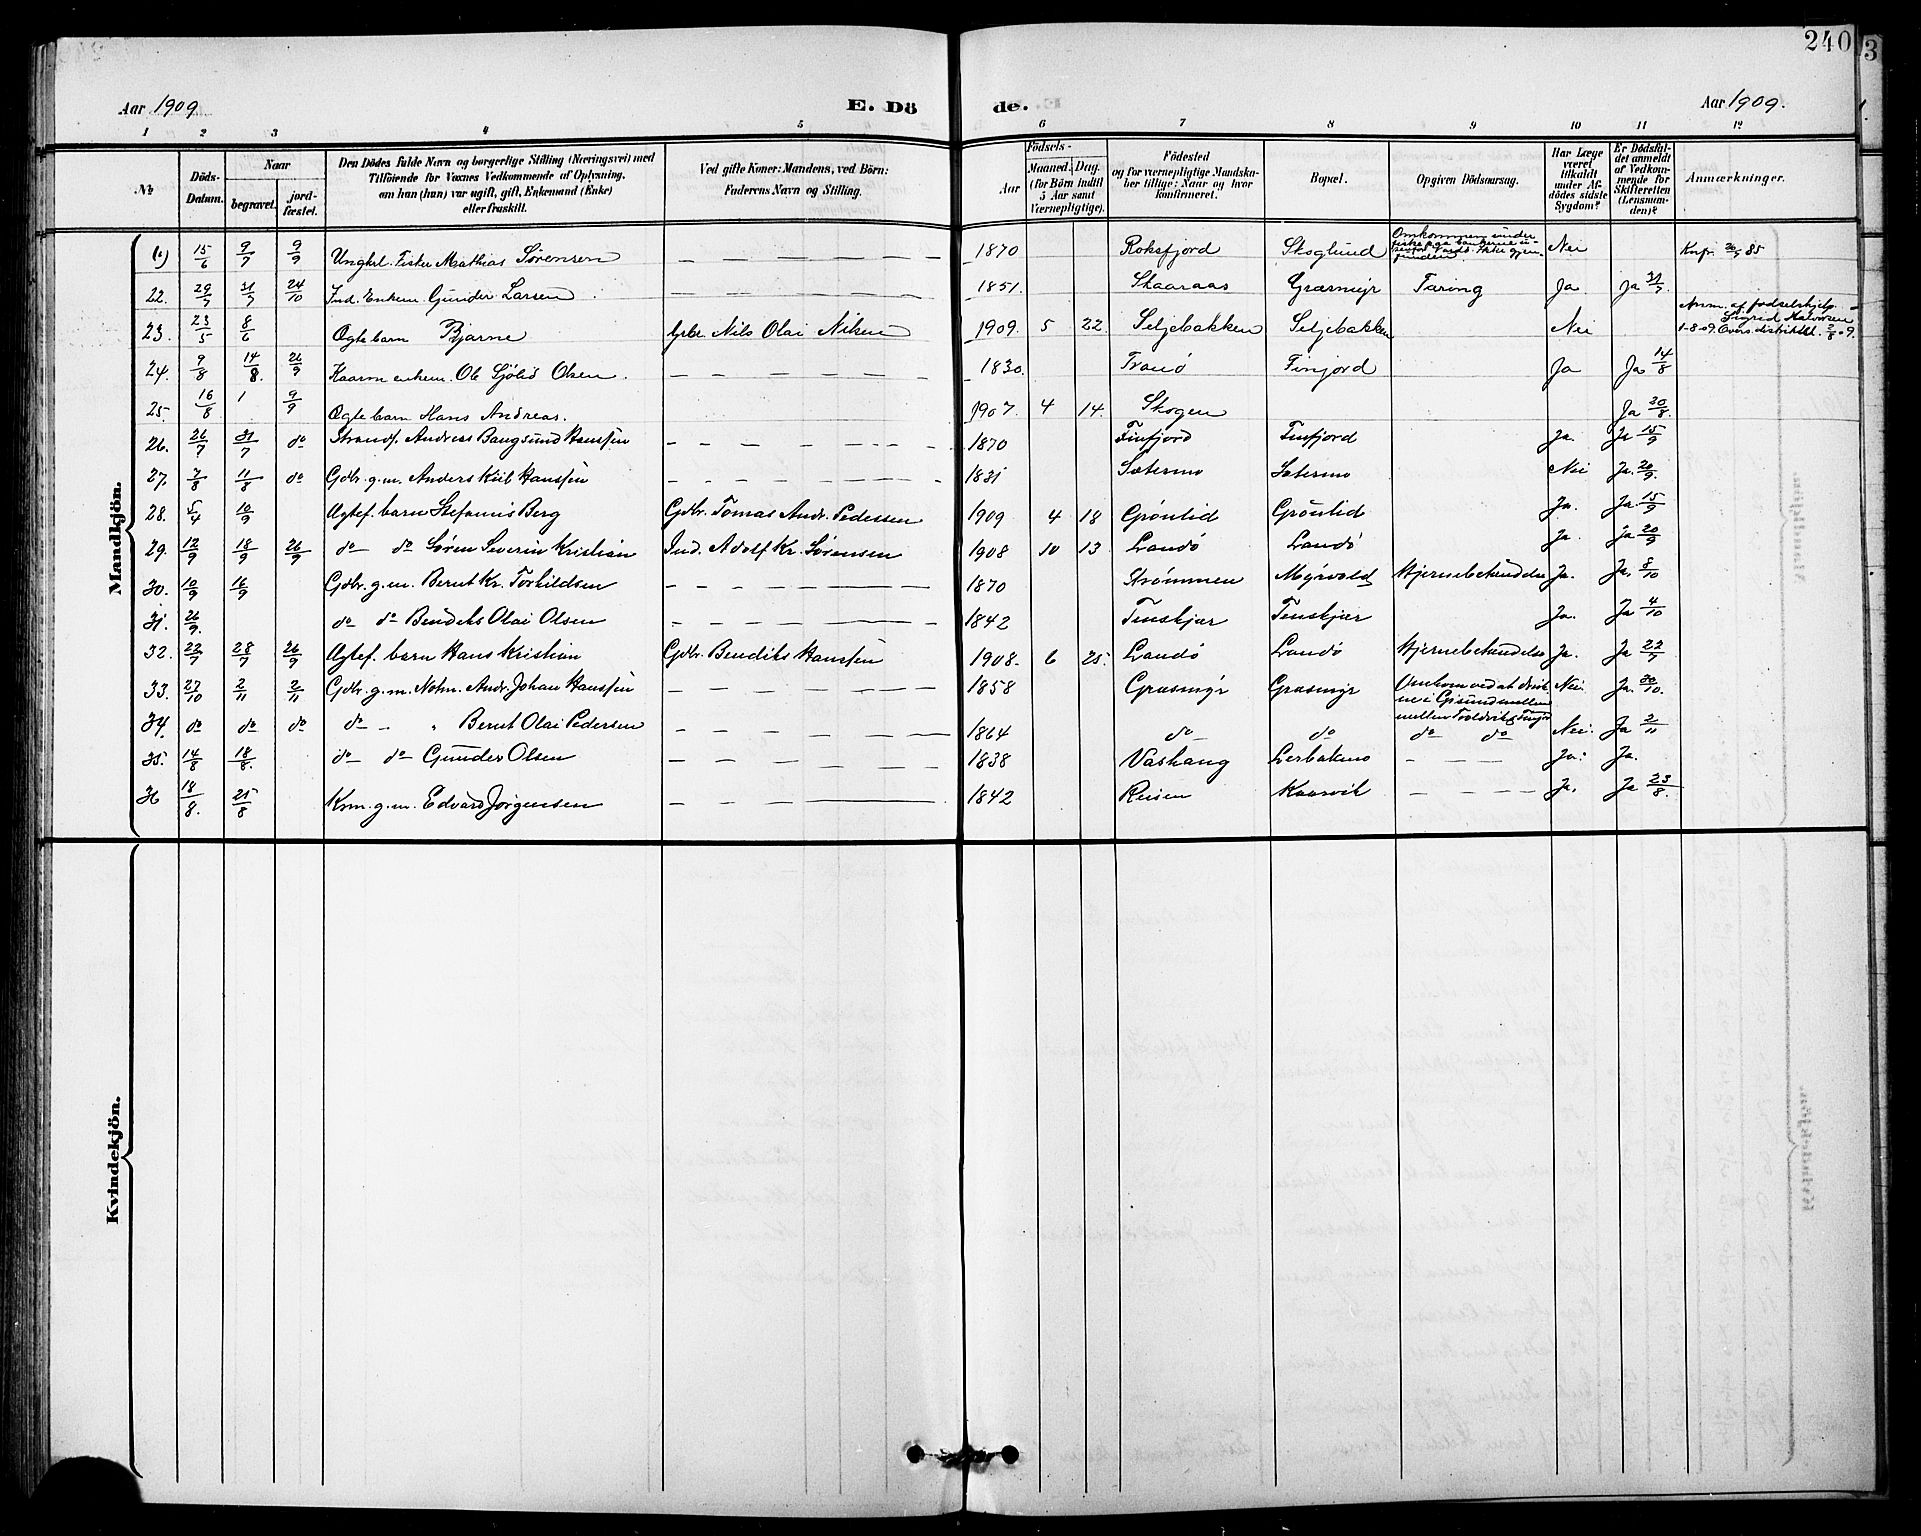 240
3
Aar 1909
E. Dö
de.
Aar 1909.
1 2 3 4 5 6 7 8 9 10 11 12
No
Döds-Datum.
Naar
begravet.
jord-fæstet.
Den Dödes fulde Navn og borgerlige Stilling (Næringsvei) med
Tilföiende for Voxnes Vedkommende af Oplysning,
om han (hun) var ugift, gift, Enkemand (Enke)
eller fraskilt.
Ved gifte Koner: Mandens, ved Börn:
Faderens Navn og Stilling.
Födsels-
Aar
Maaned. Dag.
(for Börn indtil
5 Aar samt
Værnepligtige).
Födested
og for værnepligtige Mandska-
ber tillige: Naar og hvor
konfirmeret.
Bopæl.
Opgiven Dödsaarsag.
Har Læge
været
tilkaldt
under Af-
dödes sidste
Sygdom?
Er Dödsfal-
det anmeldt
af Vedkom-
mende for
Skifteretten
(Lensman-
den)?
Anmærkninger.
Mandkjön.
15/6 9/7 9/9 Ungkrl. Fisker Mathias Sørensen — 1870 Roksfjord Skoglund Omkommen under Nei Knfr. 85
22. 29/7 31/7 24/10 Ind. Enkem. Gunder Larsen — 1851. Skaaraas Græsmyr Tæring Ja Ja 31/7
23. 23/5 8/6 Ægte barn Bjarne Gbr. Nils Olai Nilsen 1909. 5 22. Seljebakken Seljebakken Nei Anm. af fødselshjelp. Sigrid Halvorsen 1-8-09.
24. 9/8 14/8. 26/9 Kaarm. enkem. Ole Sjölid Olsen. — 1830. Tranö Finjord Ja Ja 14/8
25. 16/8 1 9/9 Ægte barn Hans Andreas. 1907. 4 14. Skogen Ja 30/8.
26. 26/7 31/7 do Strands. Andreas Bangsund Hanssen — 1870 Finfjord Finfjord Ja. Ja 15/9
27. 7/8 11/8 do Gdbr. g. m. Anders Kiil Hanssen — 1831 Sætermo Sætermo Nei Ja. 20/9.
28. 5/4 10/9 Ægtef. barn Stefanus Berg Gdbr. Tomas Andr. Pedersen 1909 4 18 Grönlid Grönlid Ja. Ja. 15/9
29. 12/9 18/9 26/9 do do Søren Severin Kristian Ind. Adolf Kr. Sørensen 1908 10 13 Landö Landö Ja. Ja 20/9
30. 10/9 16/9 Gdbr. g. m. Bernt Kr. Torkildsen — 1870 Strømmen Myrvold Hjernebetændelse Ja. Ja. 8/10
31. 26/9. do do Bendiks Olai Olsen — 1842 Finskjær Finskjær Ja. Ja 4/10
32. 22/7 28/7 26/9 Ægtef. barn Hans Kristian Gdbr. Bendiks Hanssen 1908. 6 25. Landö Landö Hjernebetændelse Ja. Ja 22/7
33. 27/10 2/11 2/11 Gdbr. g. m. Nohn. Andr. Johan Hanssen — 1858 Græsmyr Græsmyr Omkom ved at drukne i Gisund mellem Nei. Ja. 30/10.
34. do do do do - " Bernt Olai Pedersen — 1864 do do do do Nei. Ja 2/11
35. 14/8 18/8. do do Gunder Olsen — 1838 Vashaug Lerbakmo — Ja. Ja.
36 18/8. 25/8 Krm. g. m. Edvard Jørgensen — 1842 Reisen Kaarvik — Ja. Ja 23/8.
Kvindekjön.